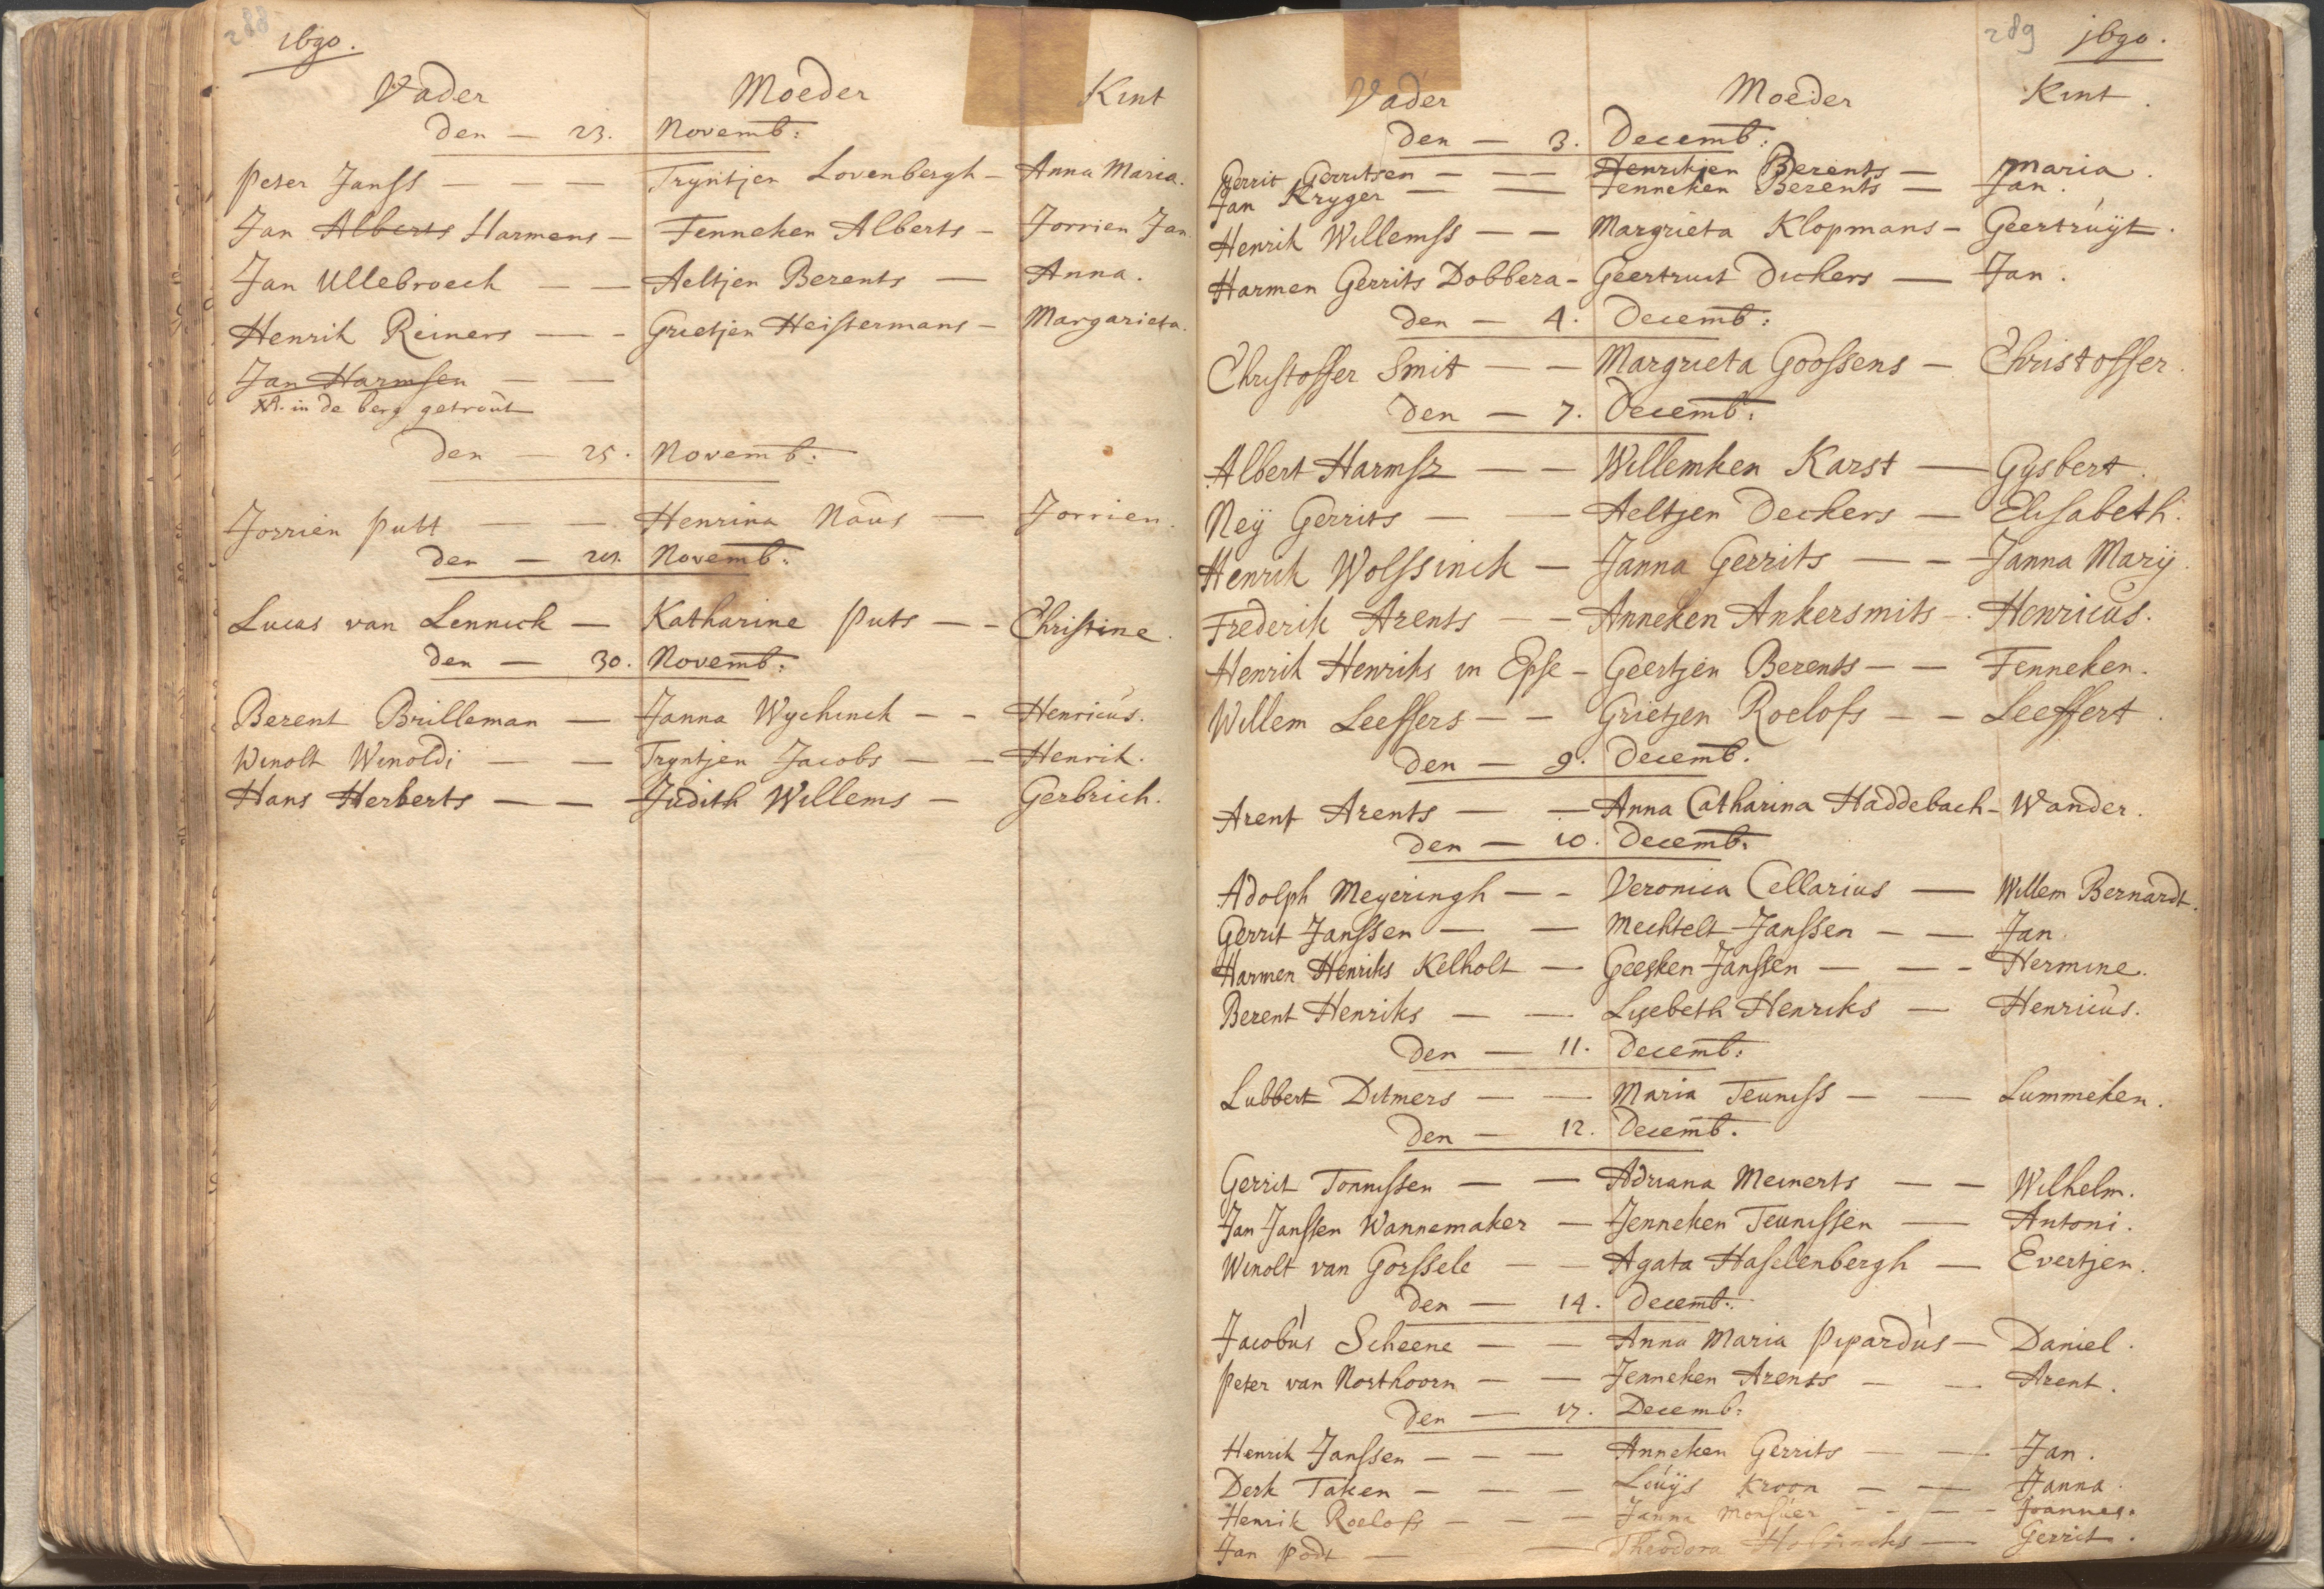 288
1690.
Vader Moeder Kint
den — 23. Novemb:
Peter Janss — — — Tryntjen Lovenbergh — Anna Maria.
Jan Alberts Harmens — Fenneken Alberts — Jorrien Jan.
Jan Ullebroeck — — Aeltjen Berents — Anna.
Henrik Reiners — — Grietjen Heistermans — Margarieta.
Jan Harmsen — —
in de berg getrout
den — 25. Novemb:
Jorrien Putt — — Henrina Naus — Jorrien.
den — Novemb:
Lucas van Lennick — Katharine Puts — — Christine.
den — 30. Novemb:
Berent Brilleman — Janna Wychinck — — Henricus.
Winolt Winoldi — — Tryntjen Jacobs — — Henrik.
Hans Herberts — — Judith Willems — Gerbrich.
289 1690.
Vader Moeder Kint.
den — 3. Decemb:
Gerrit Gerritsen — — — Henrikjen Berents — Maria.
Jan Kryger — — Jenneken Berents — Jan.
Henrik Willemss — — Margrieta Klopmans — Geertruyt.
Harmen Gerrits Dobbera — Geertruit Dickers — Jan.
den — 4. Decemb:
Christoffer Smit — — Margrieta Goossens — Christoffer.
den — 7. Decemb:
Albert Harmsz — — Willemken Karst — Gysbert.
Neÿ Gerrits — — Aeltjen Deckers — Elisabeth.
Henrik Wolssinck — Janna Gerrits — — Janna Marÿ.
Frederik Arents — — Anneken Ankersmits — Henricus.
Henrik Henriks in Epse — Geertjen Berents — — Fenneken.
Willem Leeffers — — Grietjen Roelofs — — Leeffert.
den — 9. Decemb.
Arent Arents — — Anna Catharina Haddebach — Wander.
den — 10. Decemb:
Adolph Meyeringh — — Veronica Cellarius — Willem Bernardt.
Gerrit Janssen — — Mechtelt Janssen — — Jan.
Harmen Henriks Kelholt — Geesken Janssen — — — Hermine.
Berent Henriks — — Lysebeth Henriks — Henricus.
den — 11. Decemb:
Lubbert Ditmers — — Maria Teuniss — — Lummeken.
den — 12. Decemb.
Gerrit Tonnissen — — Adriana Meinerts — — Wilhelm.
Jan Janssen Wannemaker — Jenneken Teunissen — Antoni.
Winolt van Gorssele — — Agata Haselenbergh — Evertjen.
den — 14. Decemb:
Jacobus Scheene — — Anna Maria Pipardus — Daniel.
Peter van Northoorn — — Jenneken Arents — — Arent.
den — 17. Decemb:
Henrik Janssen — — — Anneken Gerrits — — Jan.
Derk Taken — — — Louÿs Kroon — — Janna.
Henrik Roelofs — — — Janna Monsuer — — — Joannes.
Jan Podt — — Theodora — Gerrit.